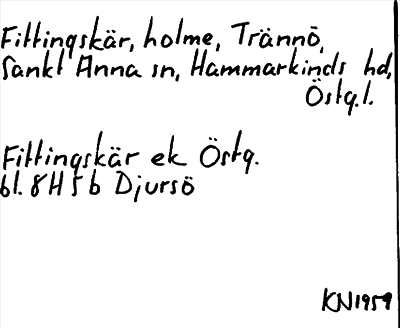 Fittingskär, holme, Trännö,
Sankt Anna sn, Hammarkinds hd,
Östg.l.
Fittingskär ek Östg.
bl. 8H 5b Djursö
KN1959